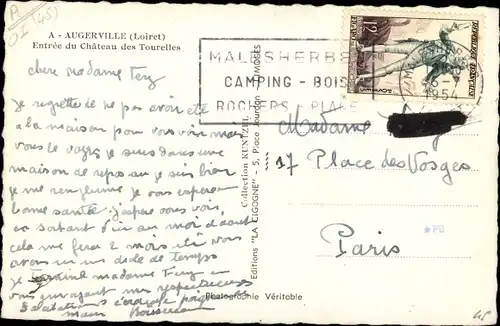 A - AUGERVILLE (Loiret)
Entrée du Château des Tourelles
chere madame Tery
je regrette de ne pas avoir été
a la maison pour vous voir mais
vous le voyez je suis dans une
maison de repos ou je suis bien
je me renplume je vous espere
bonne santé j'espere vous voir
en sortant d'ici au moi d'aout
cela me fera 2 mois
avec un drole de temps
je termine madame Tery en
vous envoyant mes respectueuses
Salutations
Collection KUNTZEL
Editions "LA CIGOGNE" - 5, Place Jourdan - LIMOGES
Photographie Véritable
MALESHERBES
CAMPING - BOIS
ROCHERS - PLAGE
12F
1954
Madame
17 Place des Vosges
Paris